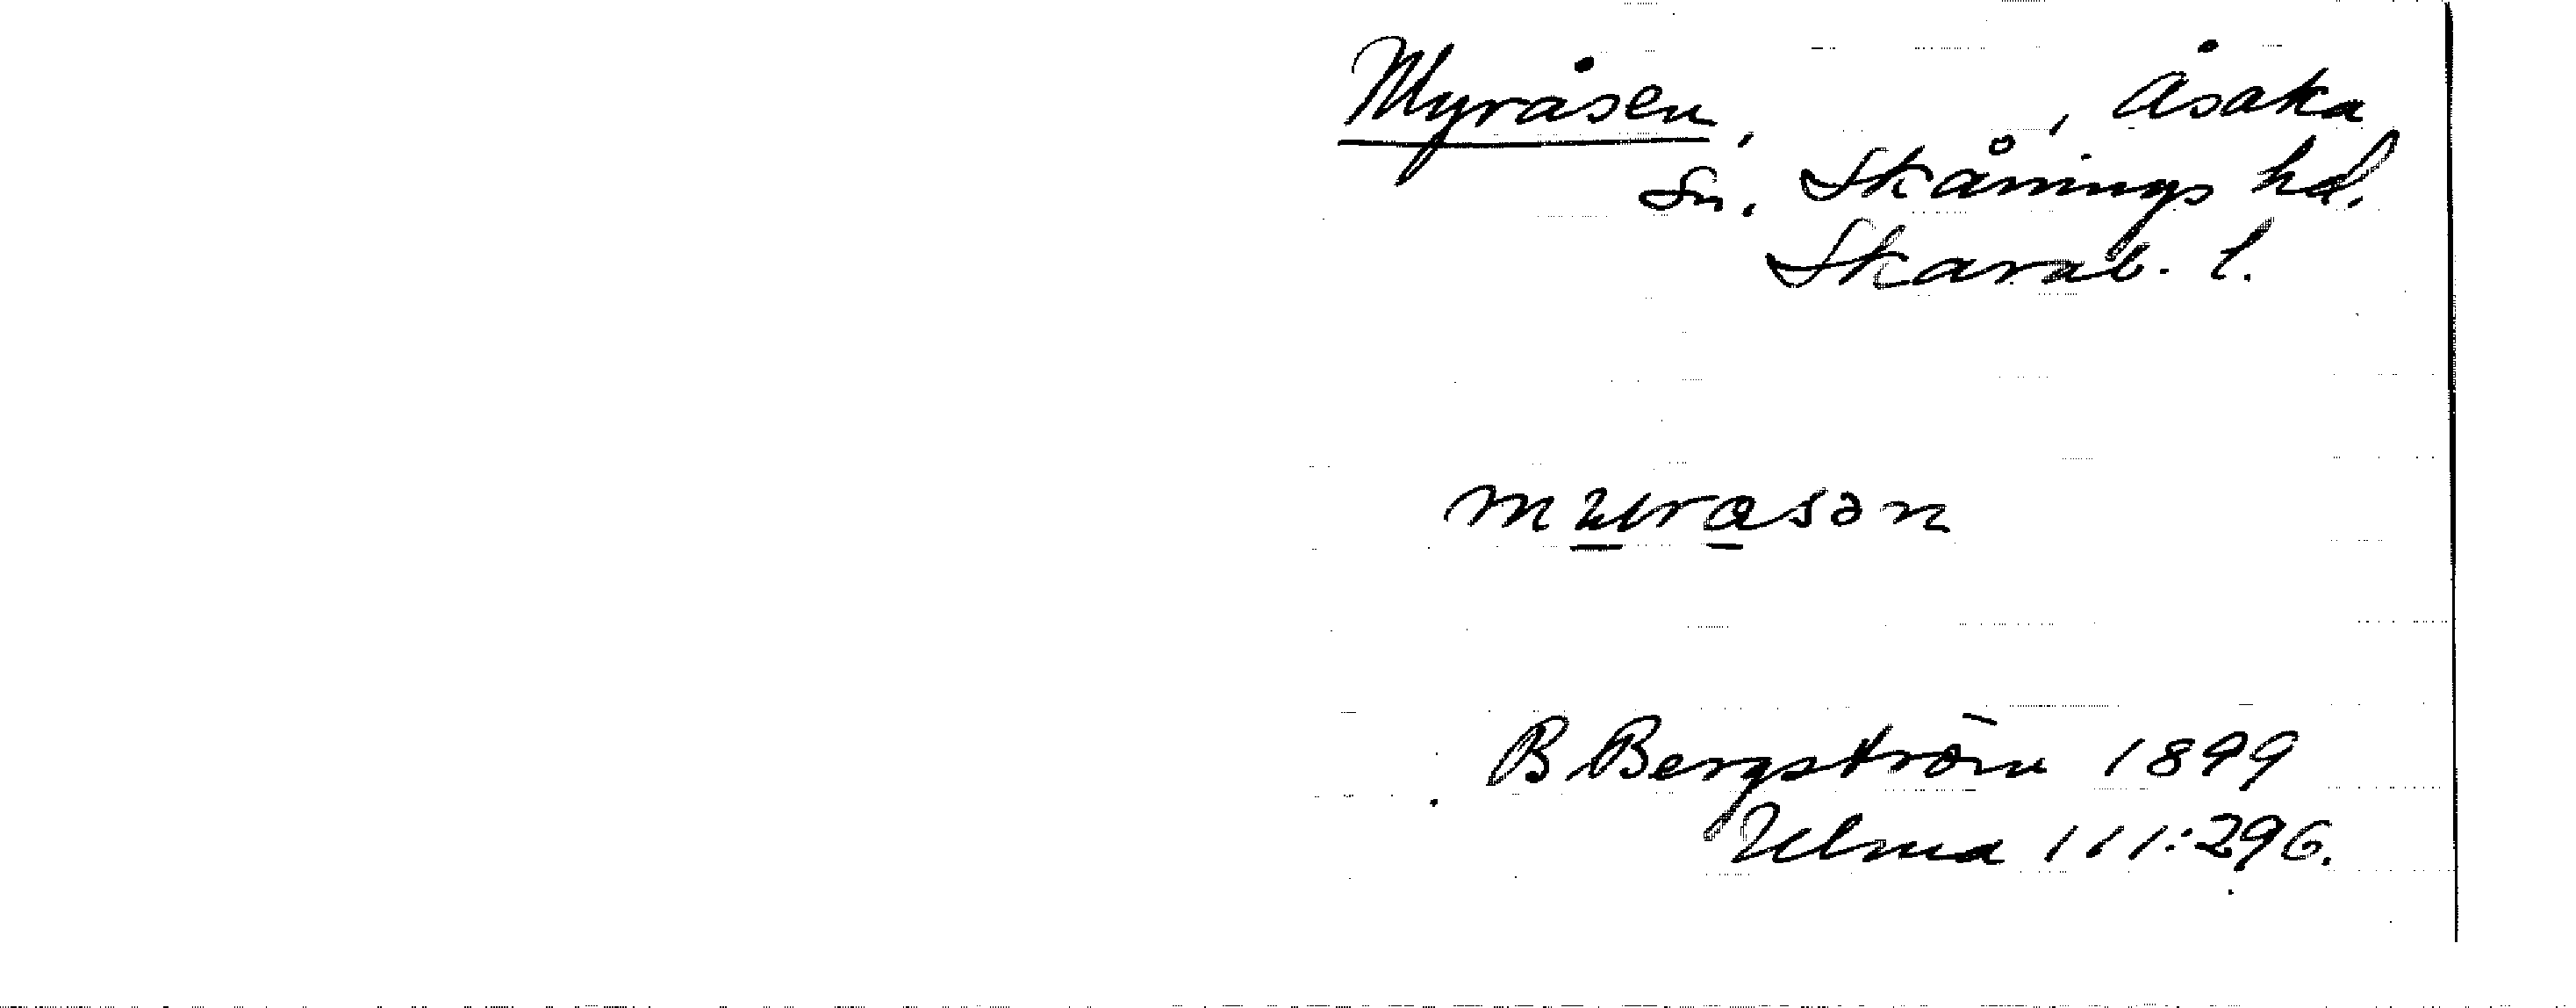 Myråsen, , Åsaka
Sn. Skånings hd.
Skarab. l.
B Bergström 1899
Ulma 111:296.